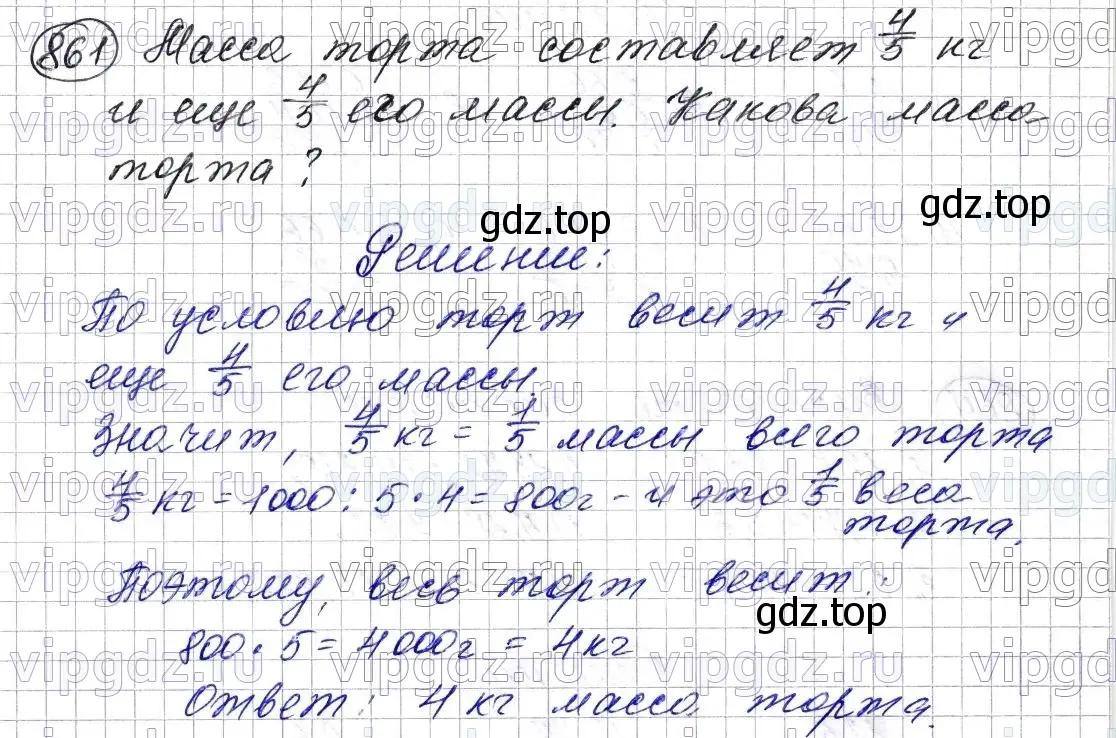 861 Масса торта составляет 4/5 кг
и еще 4/5 его массы. Какова масса
торта?
gdz.top
gdz.top
Решение:
По условию торт весит 4/5 кг и
еще 4/5 его массы.
Значит, 4/5 кг = 1/5 массы всего торта
4/5 кг = 1000 : 5 · 4 = 800г - и это 1/5 веса
торта.
Поэтому, весь торт весит:
gdz.top
800 · 5 = 4000г = 4 кг
Ответ: 4 кг масса торта.
vipgdz.ru